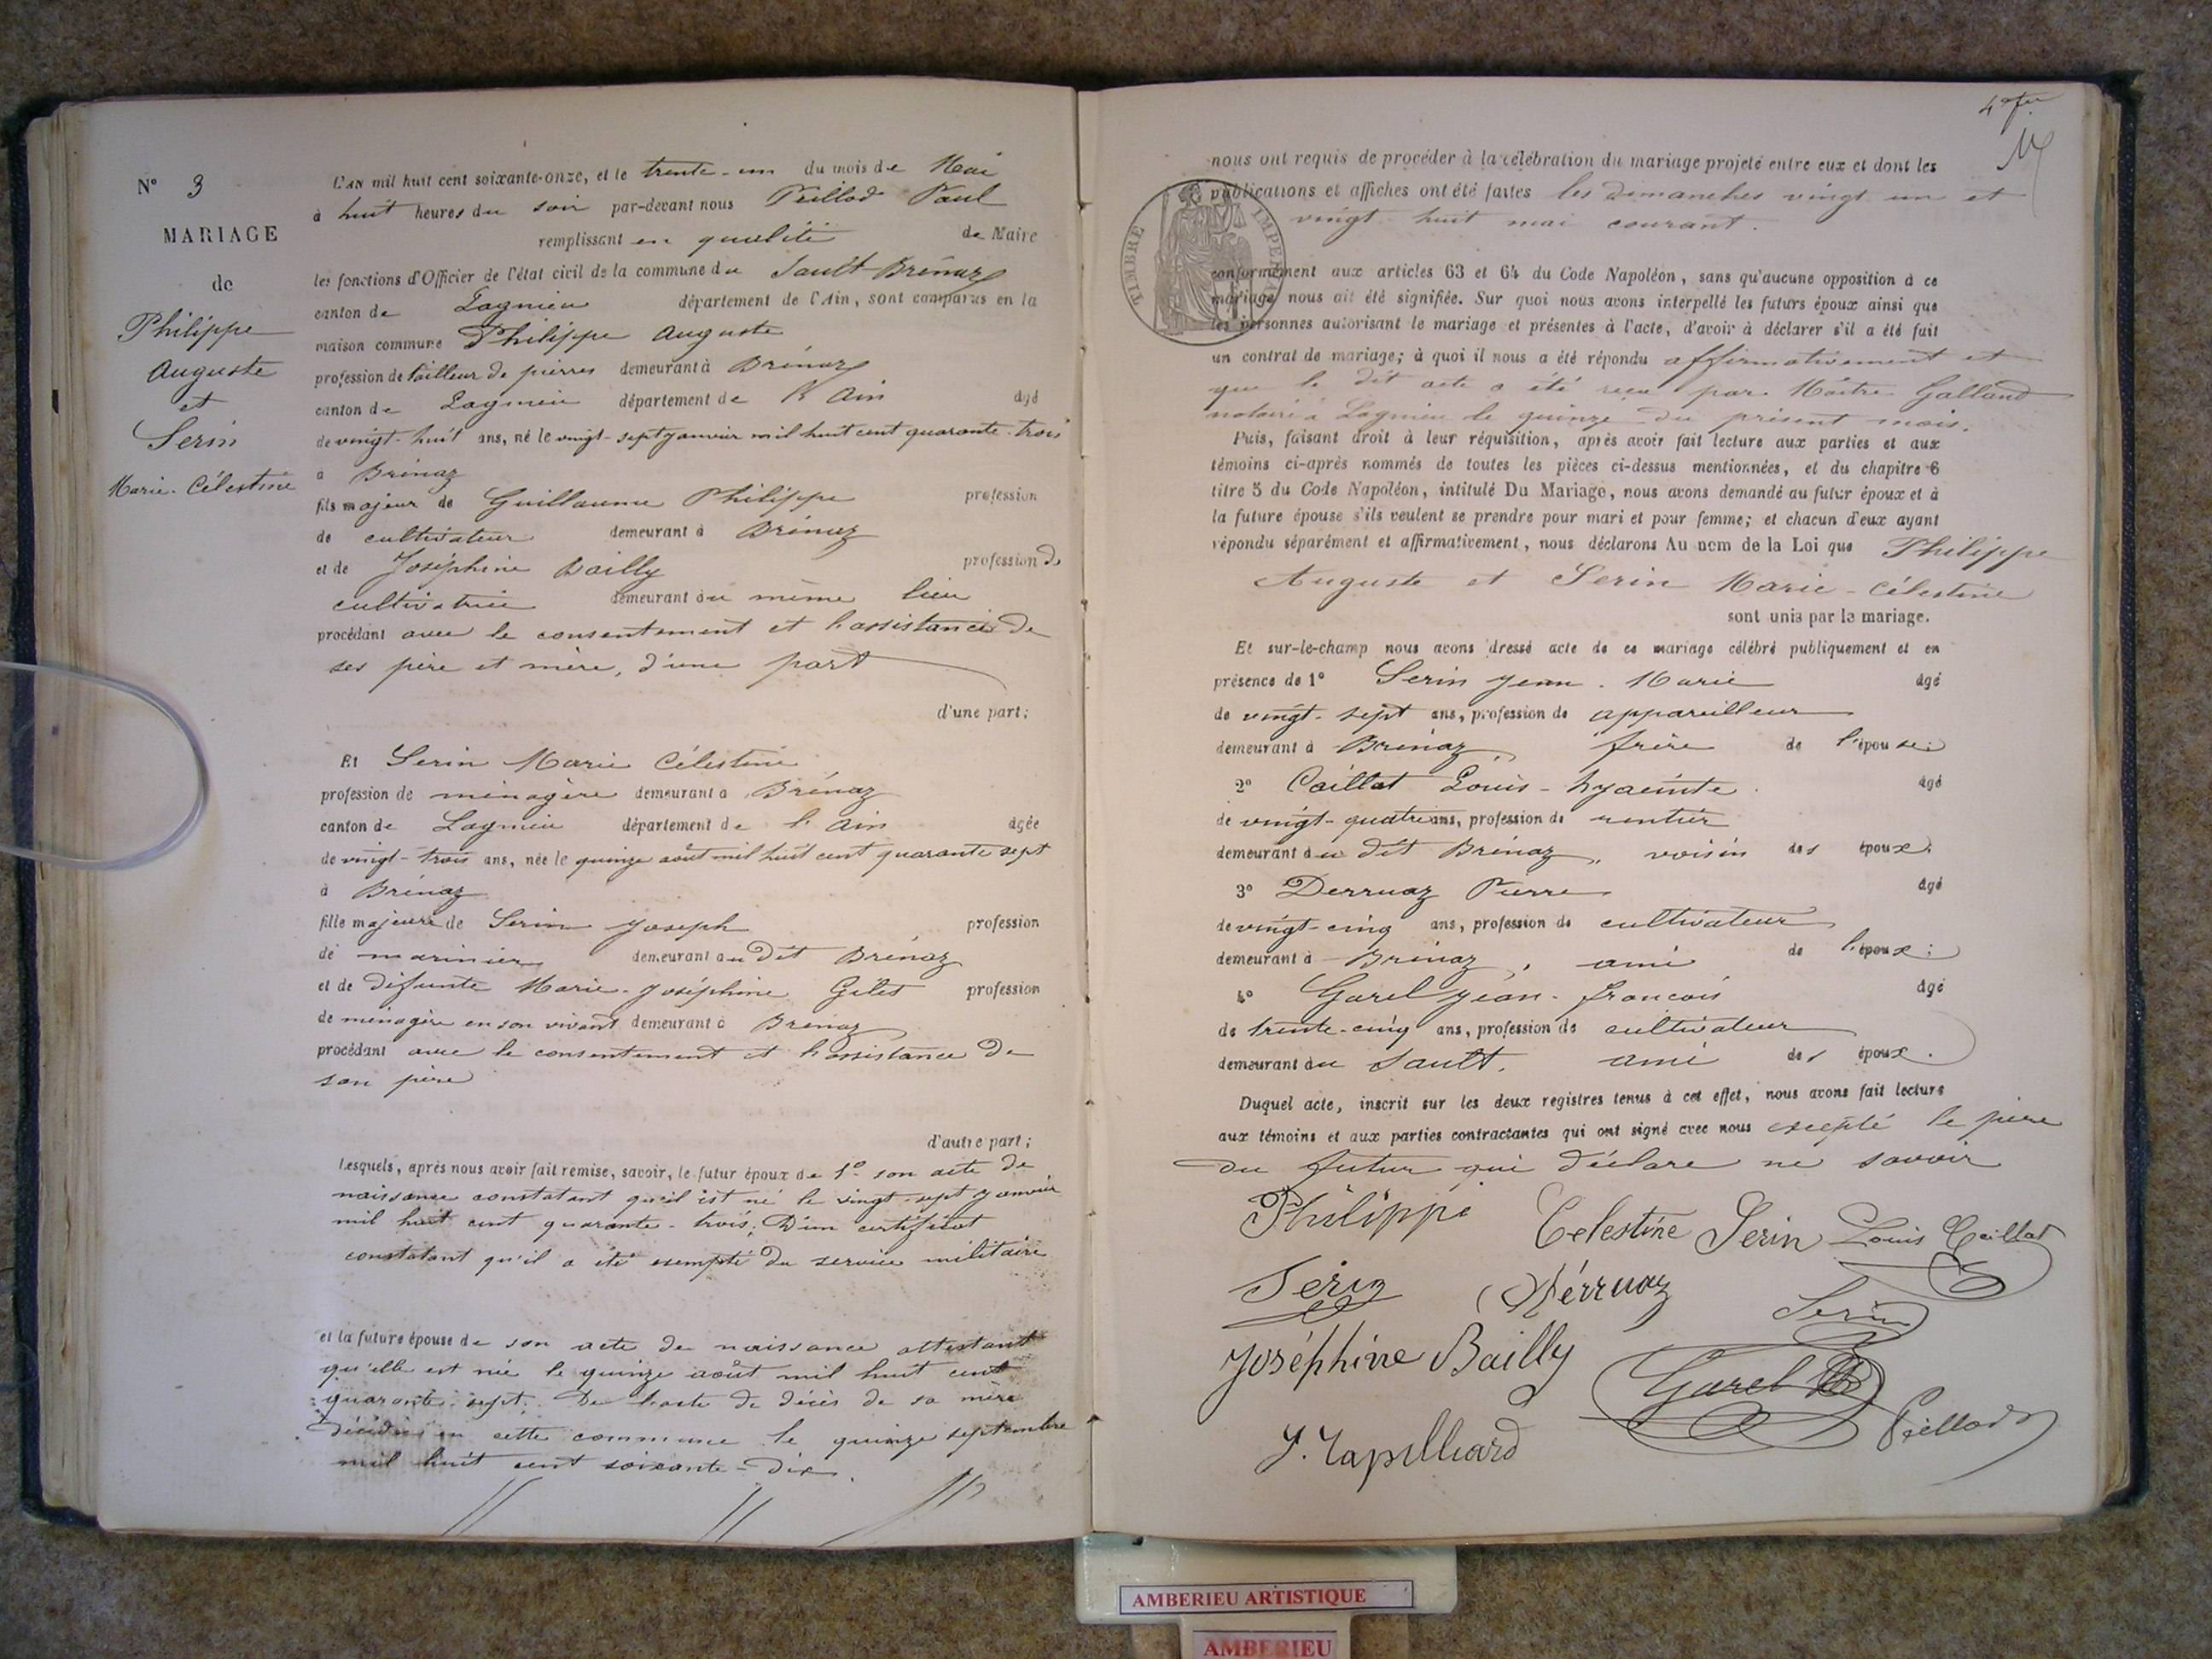 N° 3
MARIAGE
de
Philippe
Auguste
et
Serin
Marie-Célestine
L'AN mil huit cent soixante-onze, et le trente-un du mois de Mai
à huit heures du soir par-devant nous Peillod Paul
remplissant en qualité de Maire
les fonctions d'Officier de l'état civil de la commune du Sault-Brénaz
canton de Lagnieu département de l'Ain, sont comparus en la
maison commune Philippe Auguste
profession de tailleur de pierres demeurant à Brénaz
canton de Lagnieu département de l'Ain âgé
de vingt-huit ans, né le vingt-sept janvier mil huit cent quarante-trois
à Brénaz
fils majeur de Guillaume Philippe profession
de cultivateur demeurant à Brénaz
et de Joséphine Bailly profession de
cultivatrice demeurant au même lieu
procédant avec le consentement et l'assistance de
ses père et mère, d'une part
d'une part;
Et Serin Marie Célestine
profession de ménagère demeurant à Brénaz
canton de Lagnieu département de l'Ain âgée
de vingt-trois ans, née le quinze août mil huit cent quarante sept
à Brénaz
fille majeure de Serin Joseph profession
de marinier demeurant au dit Brénaz
et de défunte Marie-Joséphine Gilet profession
de ménagère en son vivant demeurant à Brénaz
procédant avec le consentement et l'assistance de
son père
d'autre part;
Lesquels, après nous avoir fait remise, savoir, le futur époux de 1° son acte de
naissance constatant qu'il est né le vingt-sept janvier
mil huit cent quarante-trois; D'un certificat
constatant qu'il a été exempté du service militaire
et la future épouse de son acte de naissance attestant
qu'elle est née le quinze août mil huit cent
quarante-sept. De l'acte de décès de sa mère
décédée en cette commune le quinze septembre
mil huit cent soixante-dix.
nous ont requis de procéder à la célébration du mariage projeté entre eux et dont les
publications et affiches ont été faites les dimanches vingt un et
vingt-huit mai courant.
TIMBRE IMPERIAL
conformément aux articles 63 et 64 du Code Napoléon, sans qu'aucune opposition à ce
mariage nous ait été signifiée. Sur quoi nous avons interpellé les futurs époux ainsi que
les personnes autorisant le mariage et présentes à l'acte, d'avoir à déclarer s'il a été fait
un contrat de mariage; à quoi il nous a été répondu affirmativement et
que le dit acte a été reçu par Maître Galland
notaire à Lagnieu le quinze du présent mois.
Puis, faisant droit à leur réquisition, après avoir fait lecture aux parties et aux
témoins ci-après nommés de toutes les pièces ci-dessus mentionnées, et du chapitre 6
titre 5 du Code Napoléon, intitulé Du Mariage, nous avons demandé au futur époux et à
la future épouse s'ils veulent se prendre pour mari et pour femme; et chacun d'eux ayant
répondu séparément et affirmativement, nous déclarons Au nom de la Loi que Philippe
Auguste et Serin Marie-Célestine
sont unis par le mariage.
Et sur-le-champ nous avons dressé acte de ce mariage célébré publiquement et en
présence de 1° Serin Jean-Marie âgé
de vingt-sept ans, profession de appareilleur
demeurant à Brénaz frère de l'épouse;
2° Caillat Louis-hyacinte âgé
de vingt-quatre ans, profession de rentier
demeurant au dit Brénaz, voisin des époux;
3° Derruaz Pierre âgé
de vingt-cinq ans, profession de cultivateur
demeurant à Brénaz, ami de l'époux;
4° Garel Jean-francois âgé
de trente-cinq ans, profession de cultivateur
demeurant au Sault, ami des époux.
Duquel acte, inscrit sur les deux registres tenus à cet effet, nous avons fait lecture
aux témoins et aux parties contractantes qui ont signé avec nous excepté le père
du futur qui déclare ne savoir
Philippe Celestine Serin Louis Caillat
Serin Dérruaz Serin
Joséphine Bailly Garel
Peillod
AMBERIEU ARTISTIQUE
AMBERIEU